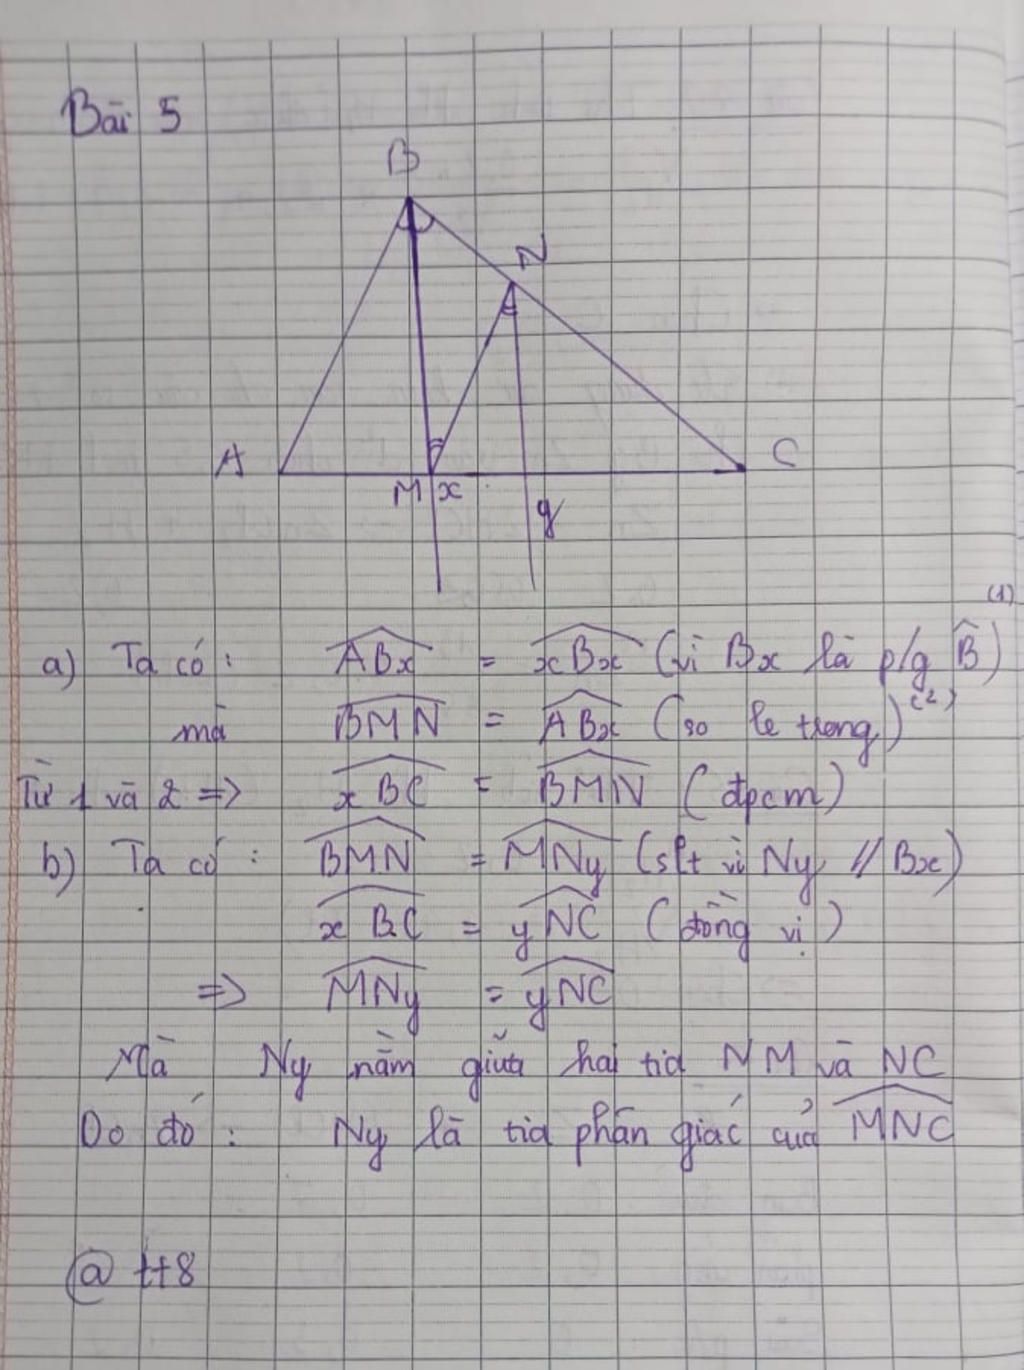 Bài 5
B
N
A
C
M x
y
a) Ta có : ABx = xBx (vì Bx là p/g B) (1)
mà BMN = ABx (so le trong) (2)
Từ 1 và 2 => xBC = BMN (đpcm)
b) Ta có : BMN = MNy (slt vì Ny // Bx)
xBC = yNC (đồng vị)
=> MNy = yNC
Mà Ny nằm giữa hai tia NM và NC
Do đó : Ny là tia phân giác của MNC
@ tt8